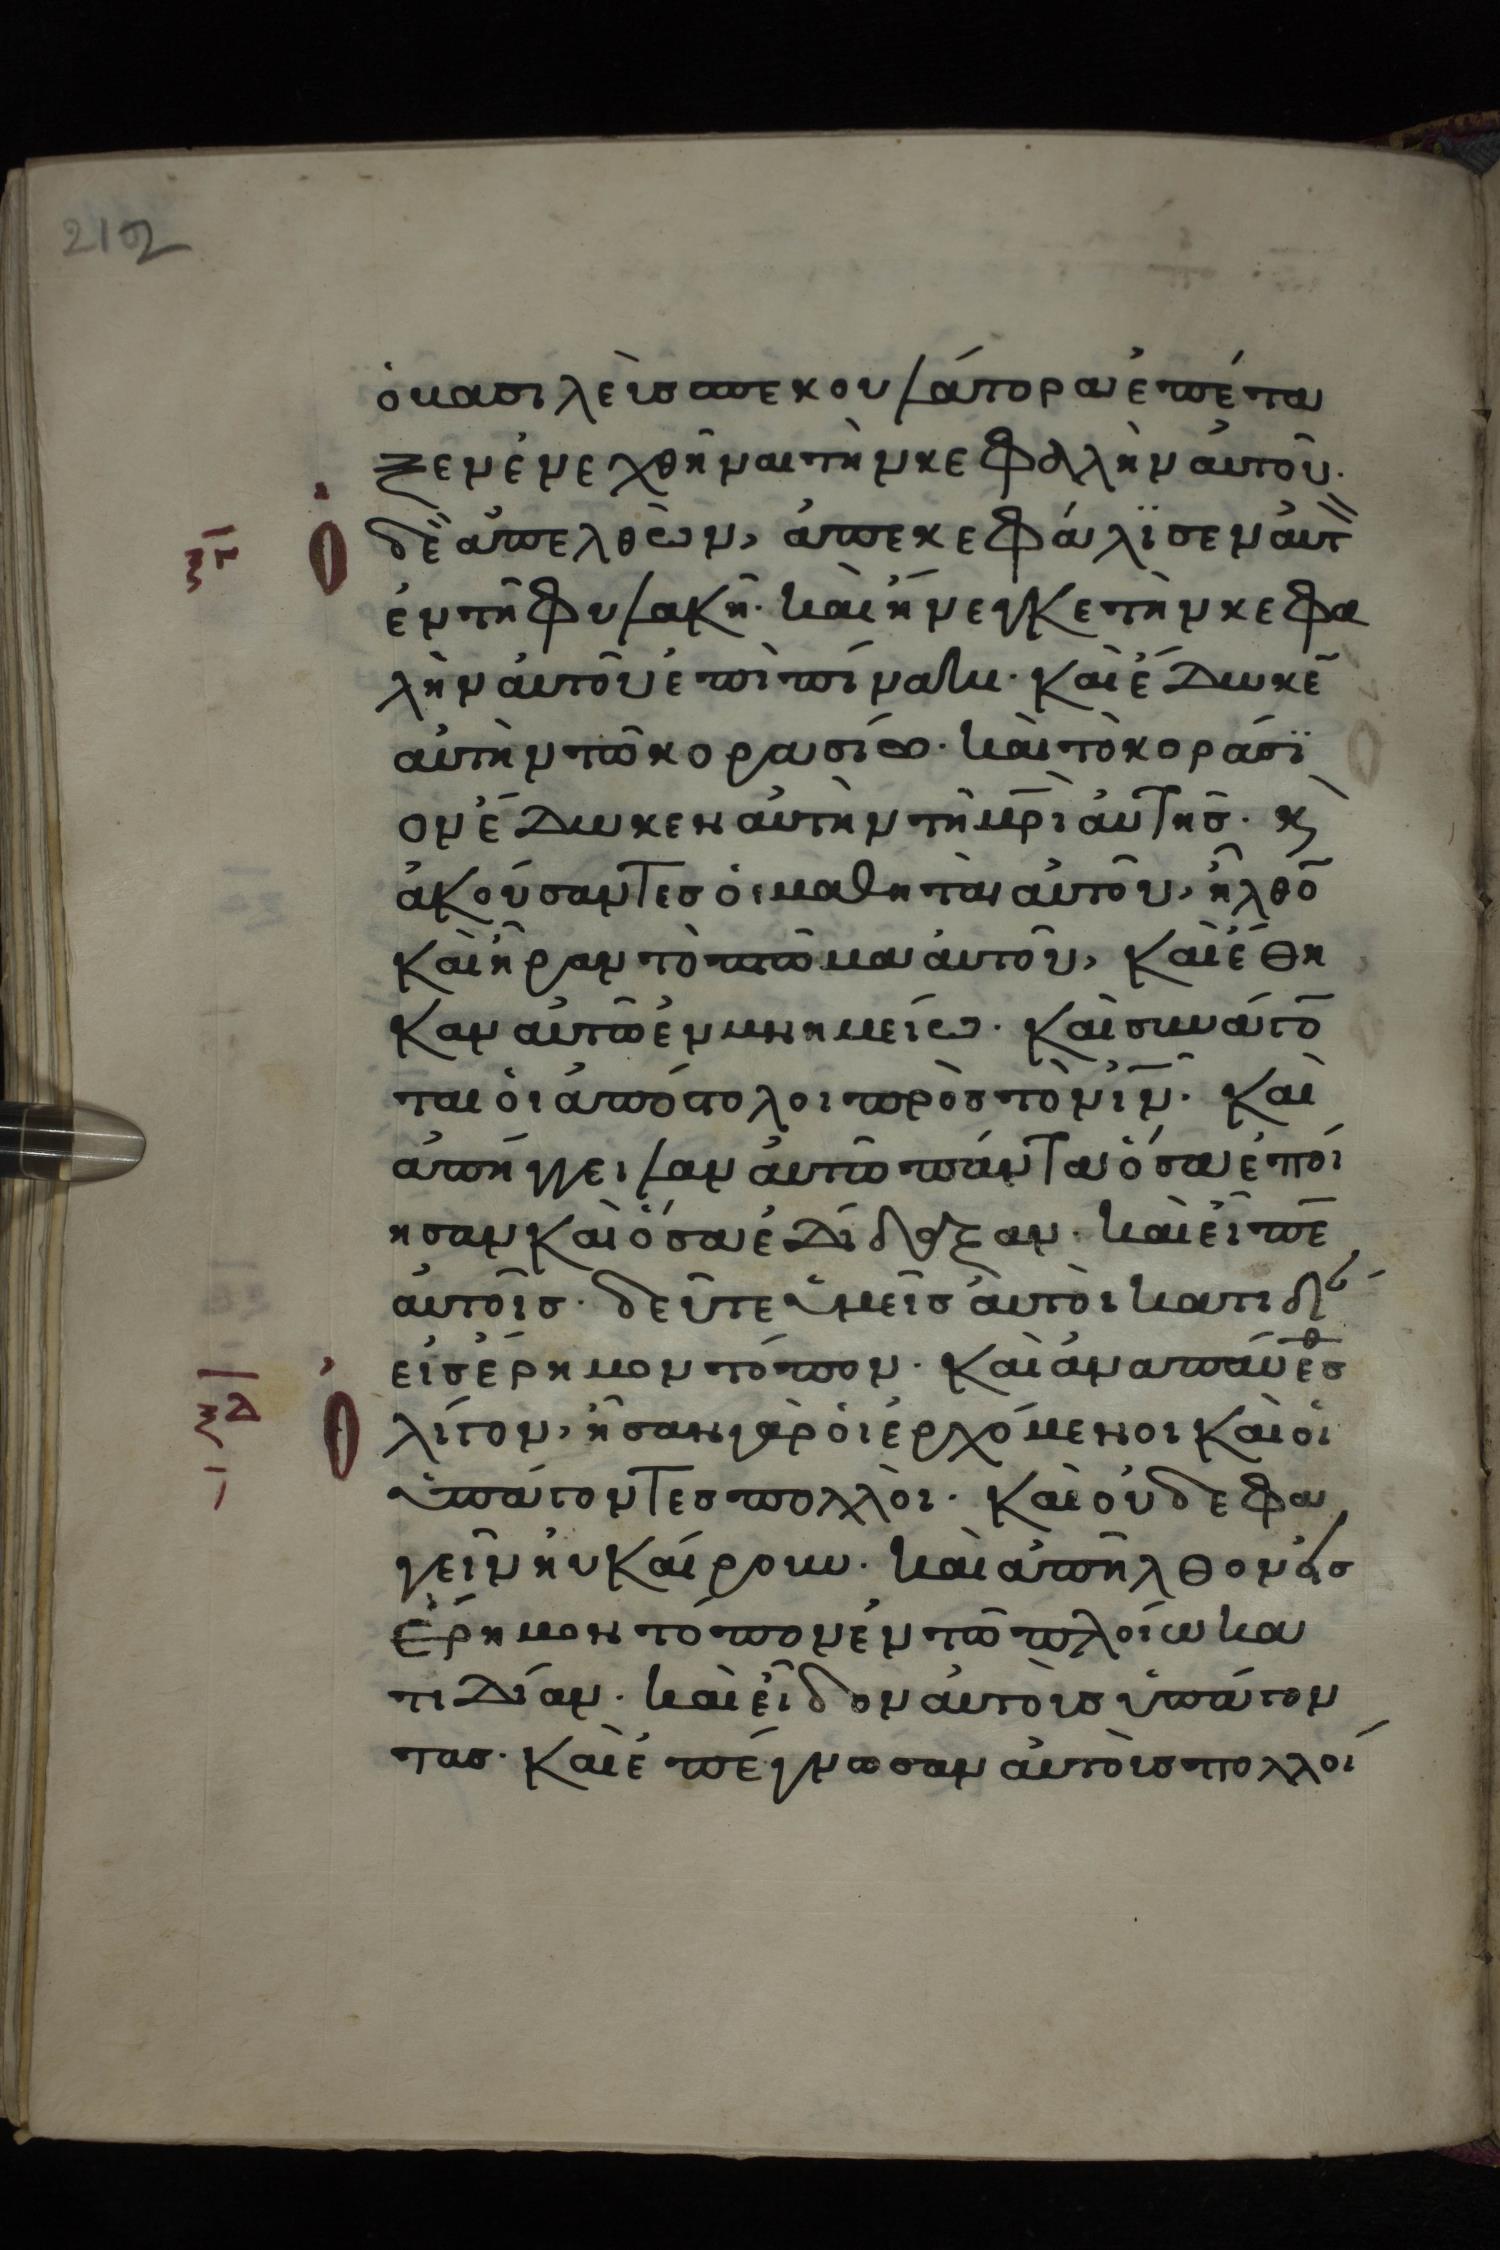 212
ὁ βασιλεὺς σπεκουλάτορα ἐπέτα
ξεν ἐνεχθῆναι τὴν κεφαλὴν αὐτοῦ.
ξγ Ὁ δὲ ἀπελθὼν, ἀπεκεφάλϊσεν αὐτ
ἐν τῆ φυλακῆ. καὶ ἤνεγκε τὴν κεφα
λὴν αὐτοῦ ἐπὶ πίνακι. καὶ ἔδωκε
αὐτὴν τῶ κορασίω. καὶ τὸ κοράσϊ
ον ἔδωκεν αὐτὴν τῆ μρὶ αὐτῆς. κ
ἀκούσαντες οἱ μαθηταὶ αὐτοῦ, ἦλθο
καὶ ἦραν τὸ πτῶμα αὐτοῦ, καὶ ἔθη
καν αὐτῶ ἐν μνημείω. καὶ συνάγο
ται οἱ ἀπόστολοι πρὸς τὸν ἰν. καὶ
ἀπήγγειλαν αὐτῶ πάντα ὅσα ἐποί
ησαν καὶ ὅσα ἐδίδαξαν. καὶ εἶπε
αὐτοῖς. δεῦτε ὑμεῖς αὐτοὶ κατιδί
εἰς ἔρημον τόπον. καὶ ἀναπαύεσθ
ξδ Ὀλίγον, ἦσαν γὰρ οἱ ἐρχόμενοι καὶ οἱ
ὑπάγοντες πολλοὶ. καὶ οὐδε φα
γεῖν ηὐκαίρουν. καὶ ἀπῆλθον εἰς
ἔρημον τόπον ἐν τῶ πλοίω κα
τιδίαν. καὶ εἶδον αὐτοὺς ὑπάγον
τας. καὶ ἐπέγνωσαν αὐτοὺς πολλοί